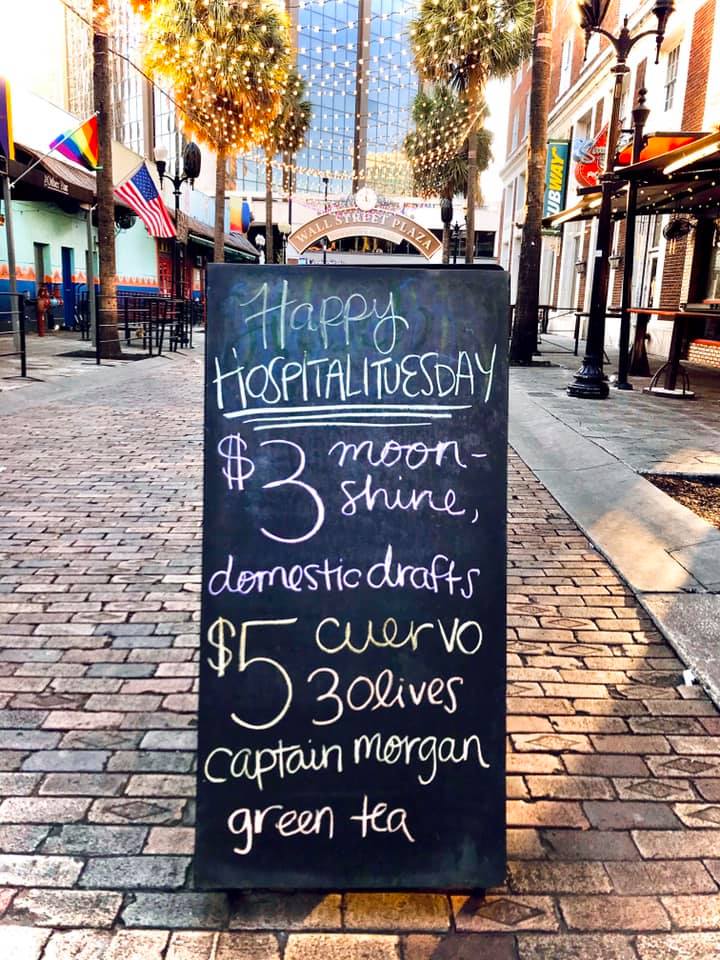 WALL STREET PLAZA
SUBWAY
Happy
HOSPITALITUESDAY
$3 moon-
shine,
domestic drafts
$5 cuervo
3olives
captain morgan
green tea